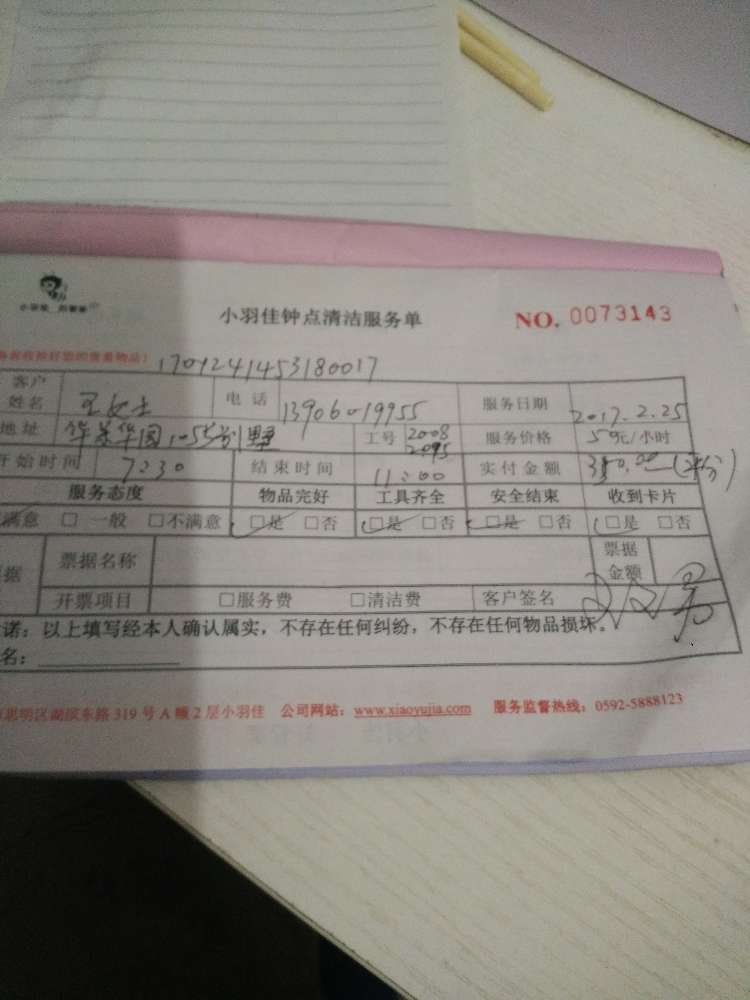 小羽佳钟点清洁服务单 NO. 0073143
您的贵重物品) 1701241453180017
客户姓名 王女士 电话 13906019955 服务日期 2017.2.25
地址 华景华园 别墅 工号 2008 2095 服务价格 50元/小时
开始时间 7:30 结束时间 11:00 实付金额 350.00
服务态度 物品完好 工具齐全 安全结束 收到卡片
满意 □ 一般 □不满意 □是 □否 □是 □否 □是 □否 □是 □否
据 票据名称 票据金额
开票项目 □服务费 □清洁费 客户签名
诺：以上填写经本人确认属实，不存在任何纠纷，不存在任何物品损坏。
名：
思明区湖滨东路 319 号 A 幢 2 层小羽佳 公司网站：www.xiaoyujia.com 服务监督热线：0592-5888123